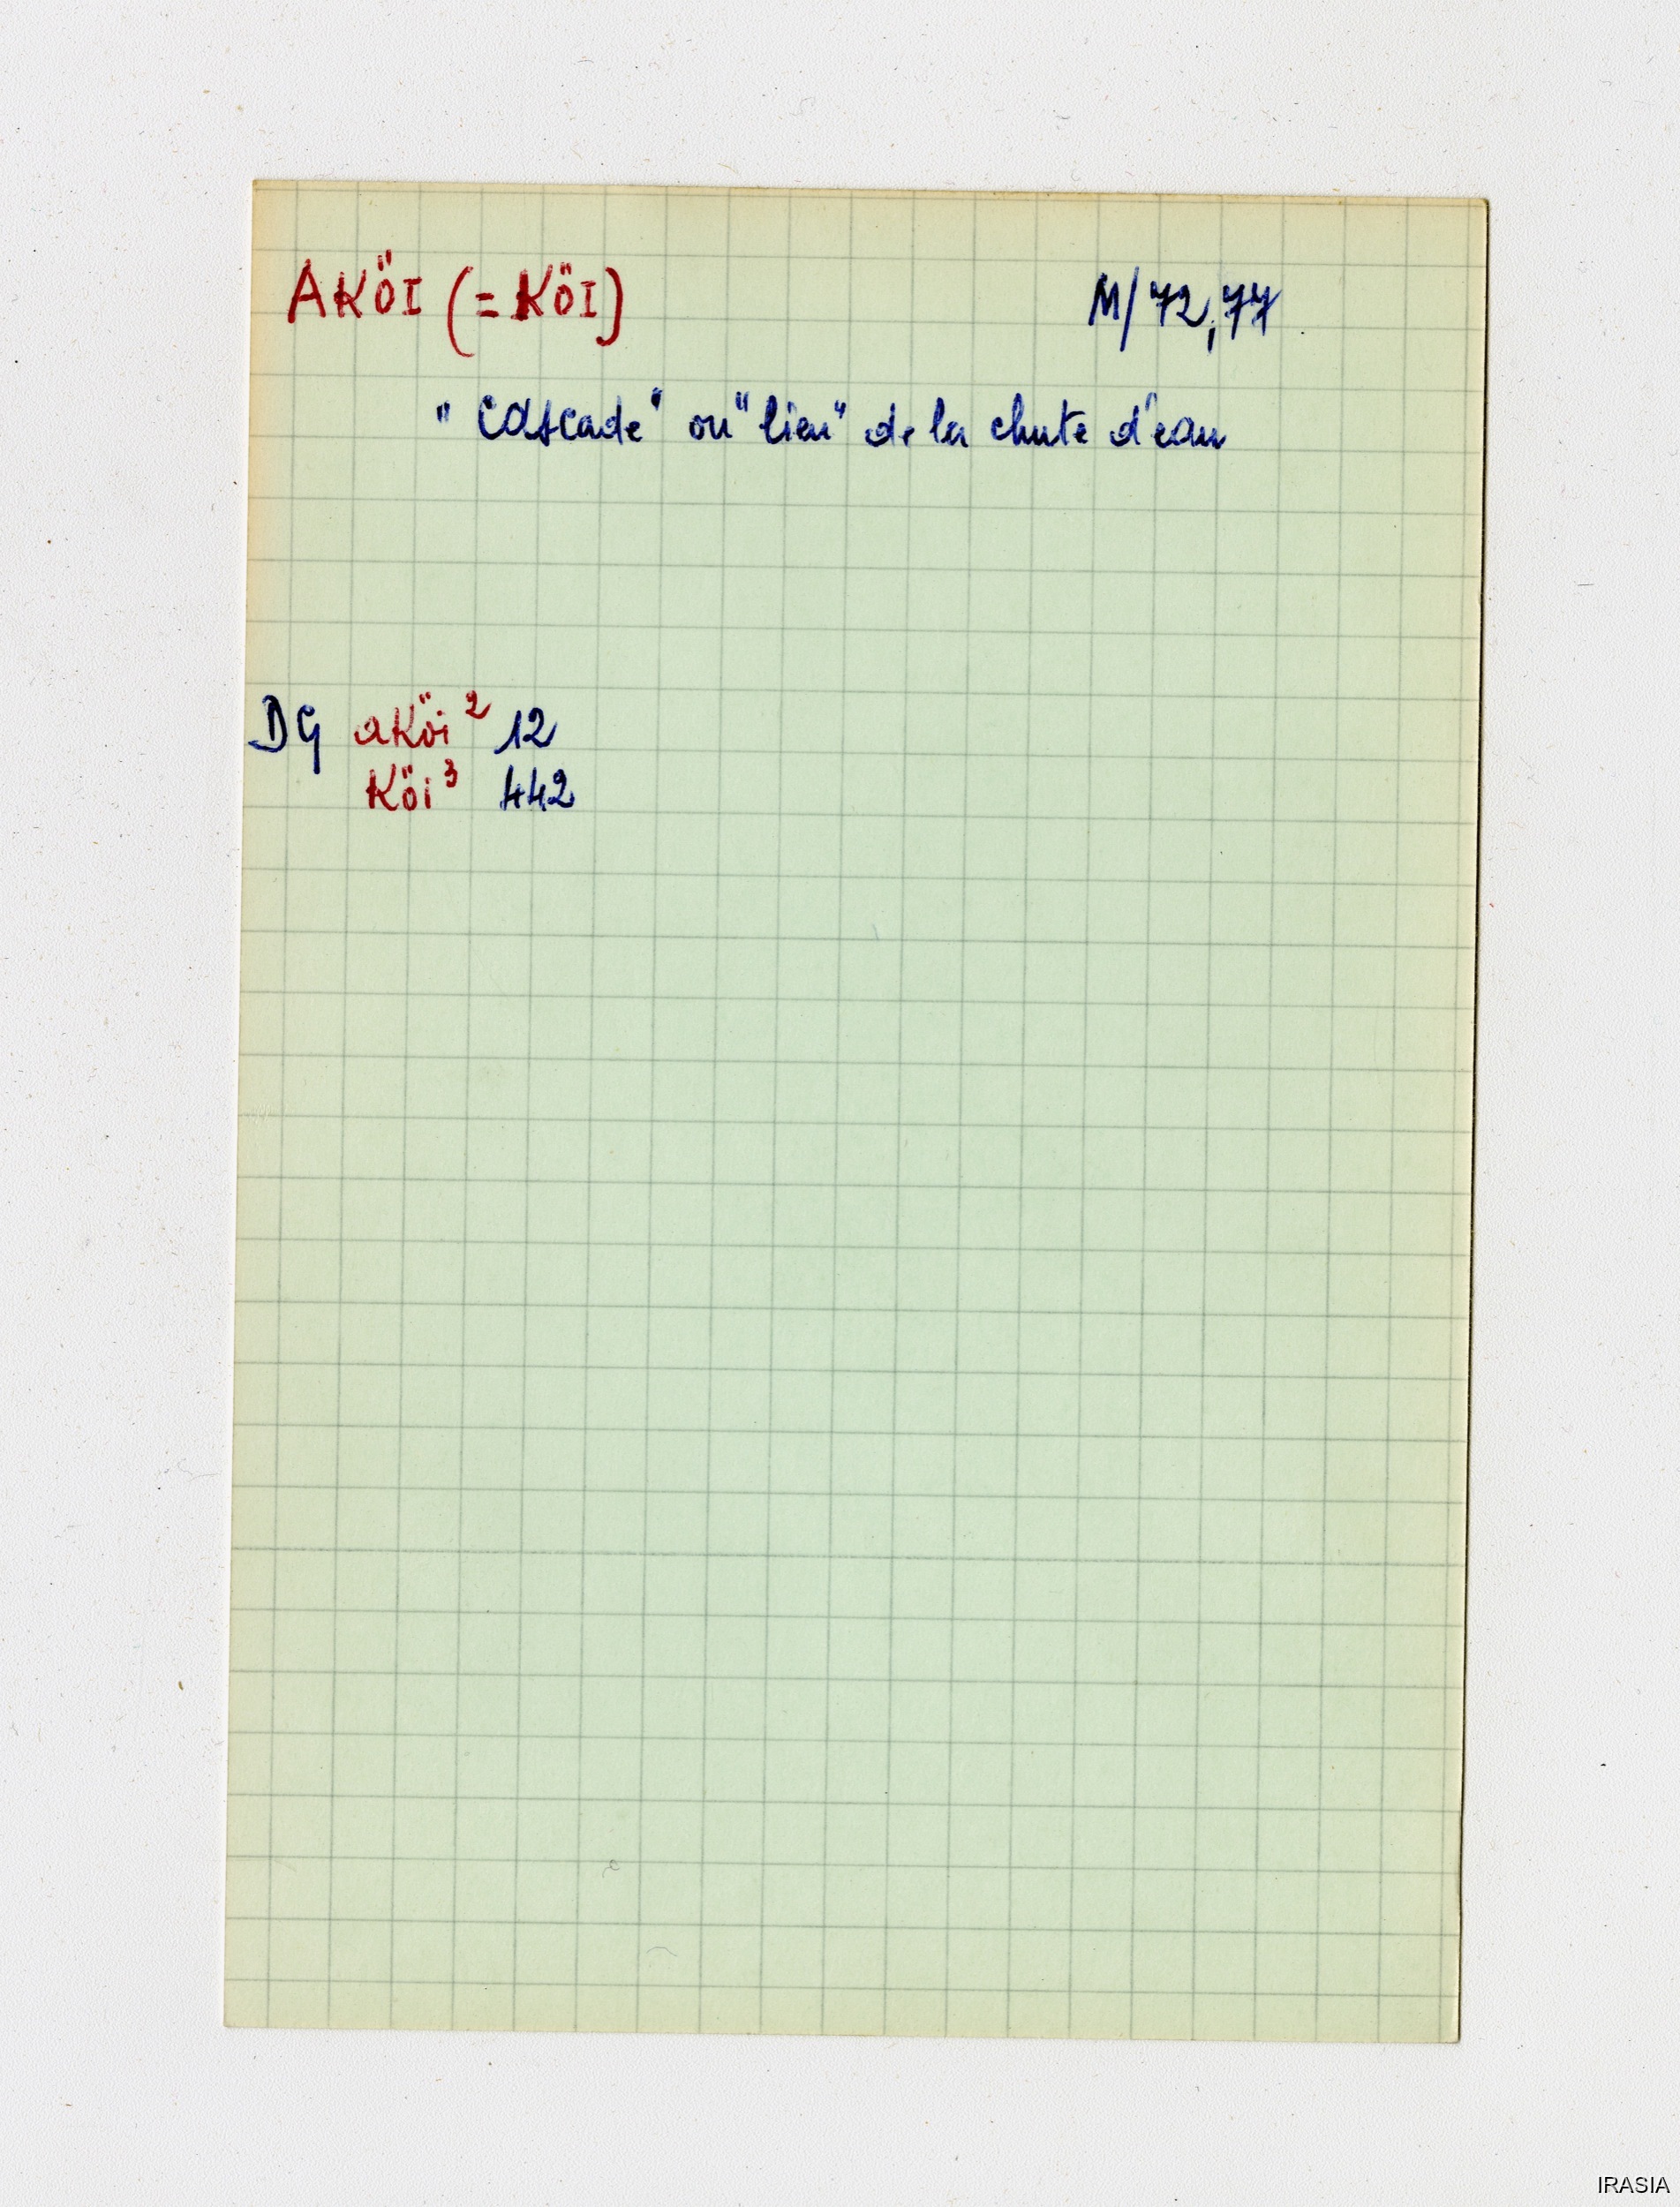 AKÖI (= KÖI) M/72,77
"Cascade" ou "lieu" de la chute d'eau
DG aKöi² 12
Köi³ 442
IRASIA